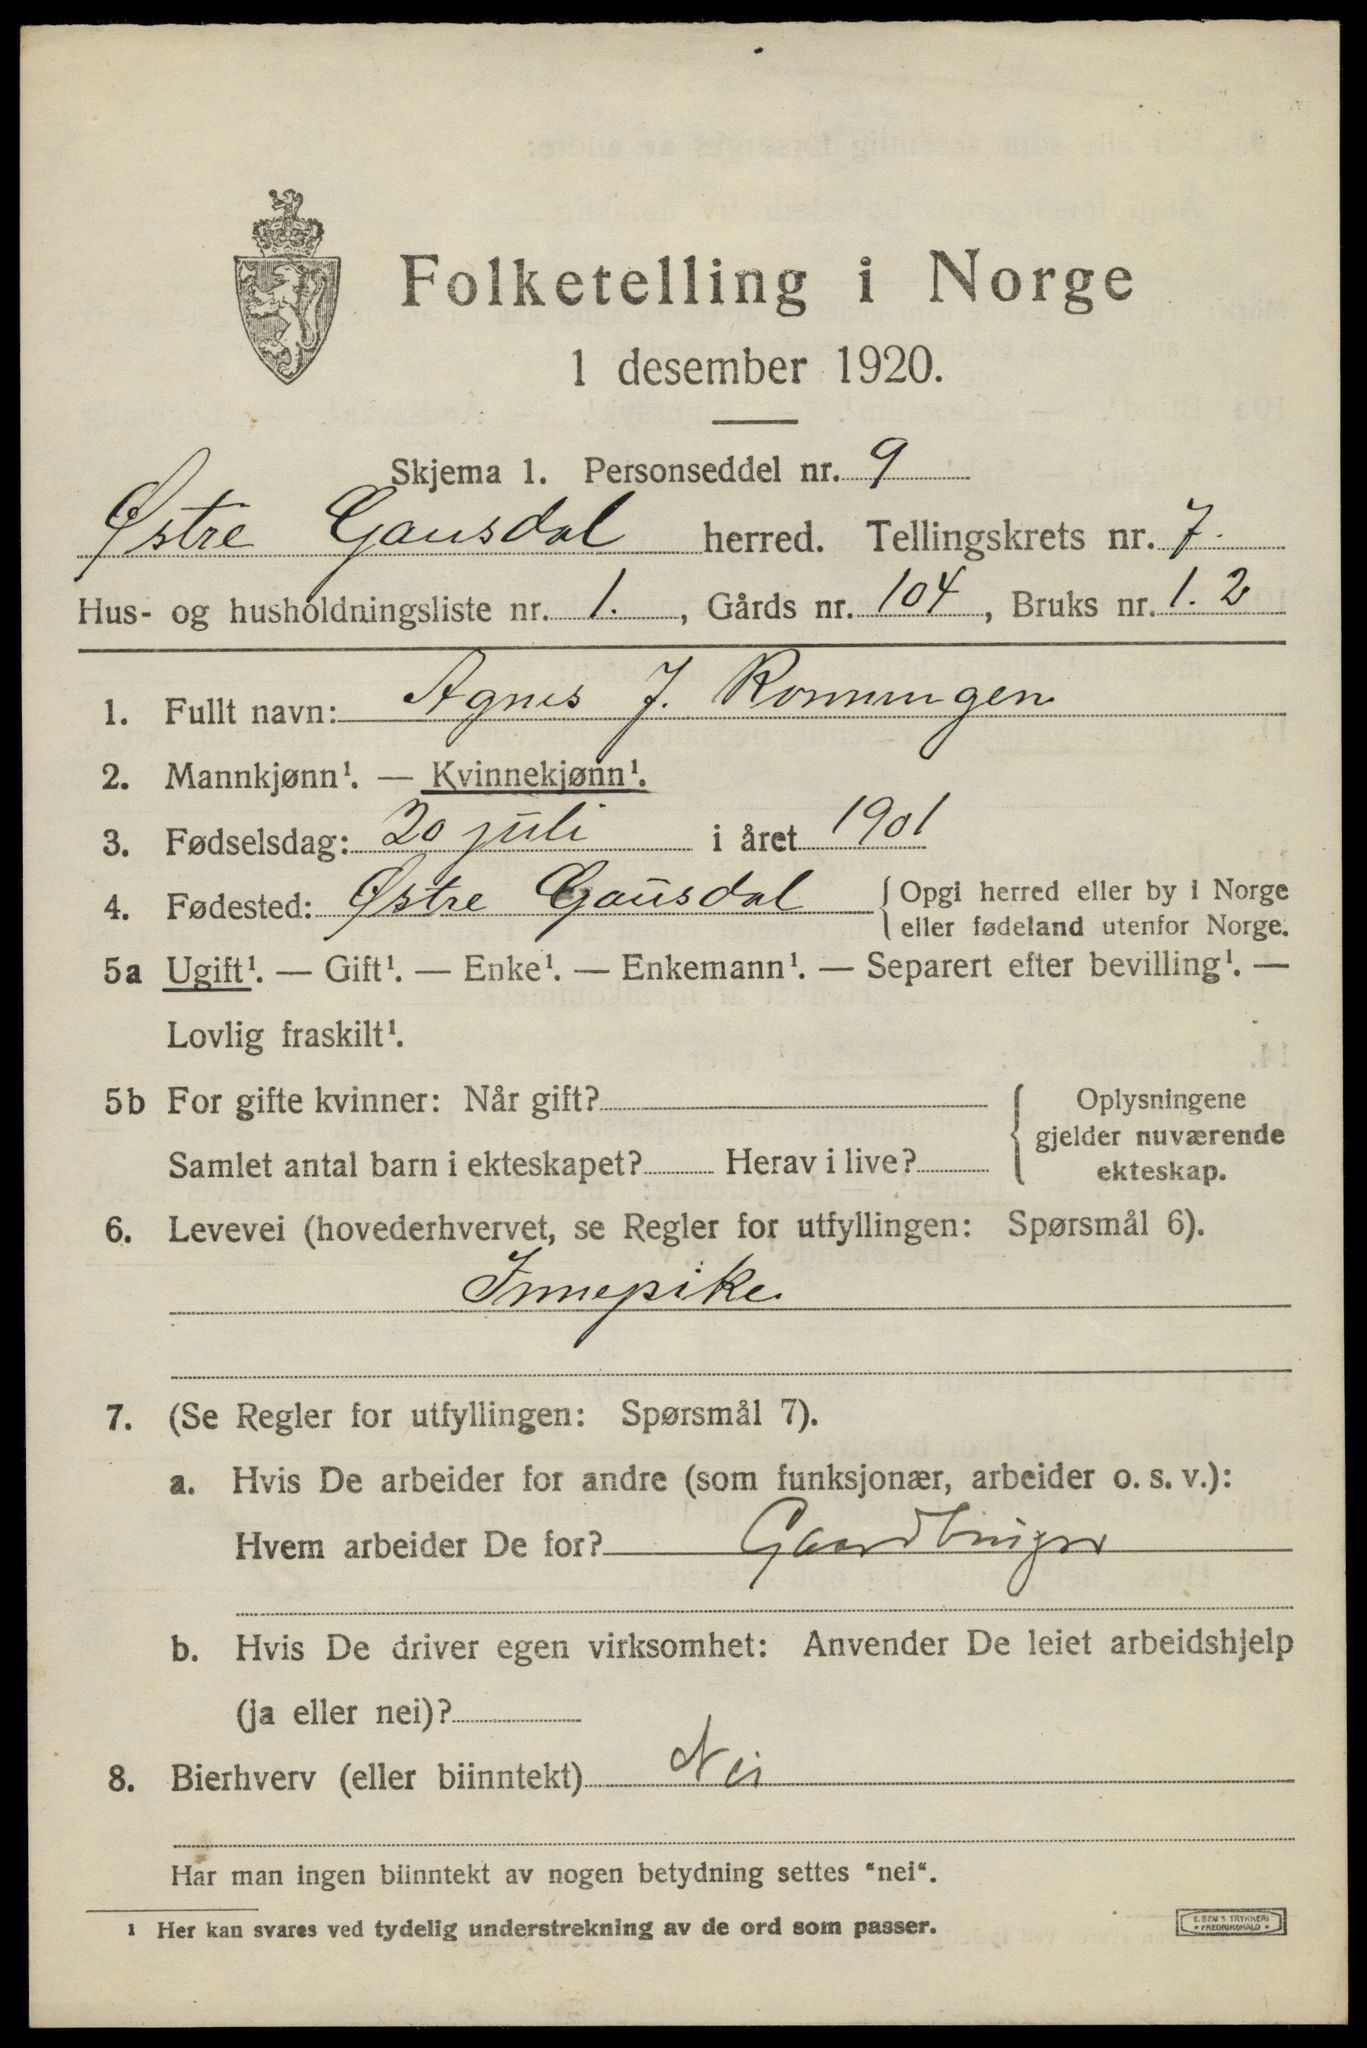 Folketelling i Norge
1 desember 1920.
Skjema 1. Personseddel nr. 9
Østre Gausdal herred. Tellingskrets nr. 7.
Hus- og husholdningsliste nr. 1. , Gårds nr. 104 , Bruks nr. 1. 2
1. Fullt navn: Agnes J. Rønningen
2. Mannkjønn¹. — Kvinnekjønn¹.
3. Fødselsdag: 20 juli i året 1901
4. Fødested: Østre Gausdal { Opgi herred eller by i Norge
eller fødeland utenfor Norge.
5a Ugift¹. — Gift¹. — Enke¹. — Enkemann¹. — Separert efter bevilling¹. —
Lovlig fraskilt¹.
5b For gifte kvinner: Når gift?
Samlet antal barn i ekteskapet? Herav i live?
{ Oplysningene
gjelder nuværende
ekteskap.
6. Levevei (hovederhvervet, se Regler for utfyllingen: Spørsmål 6).
Innepike
7. (Se Regler for utfyllingen: Spørsmål 7).
a. Hvis De arbeider for andre (som funksjonær, arbeider o. s. v.):
Hvem arbeider De for? Gaardbruger
b. Hvis De driver egen virksomhet: Anvender De leiet arbeidshjelp
(ja eller nei)?
8. Bierhverv (eller biinntekt) Nei
Har man ingen biinntekt av nogen betydning settes "nei".
¹ Her kan svares ved tydelig understrekning av de ord som passer.
E. SEM'S TRYKKERI
FREDRIKSHALD